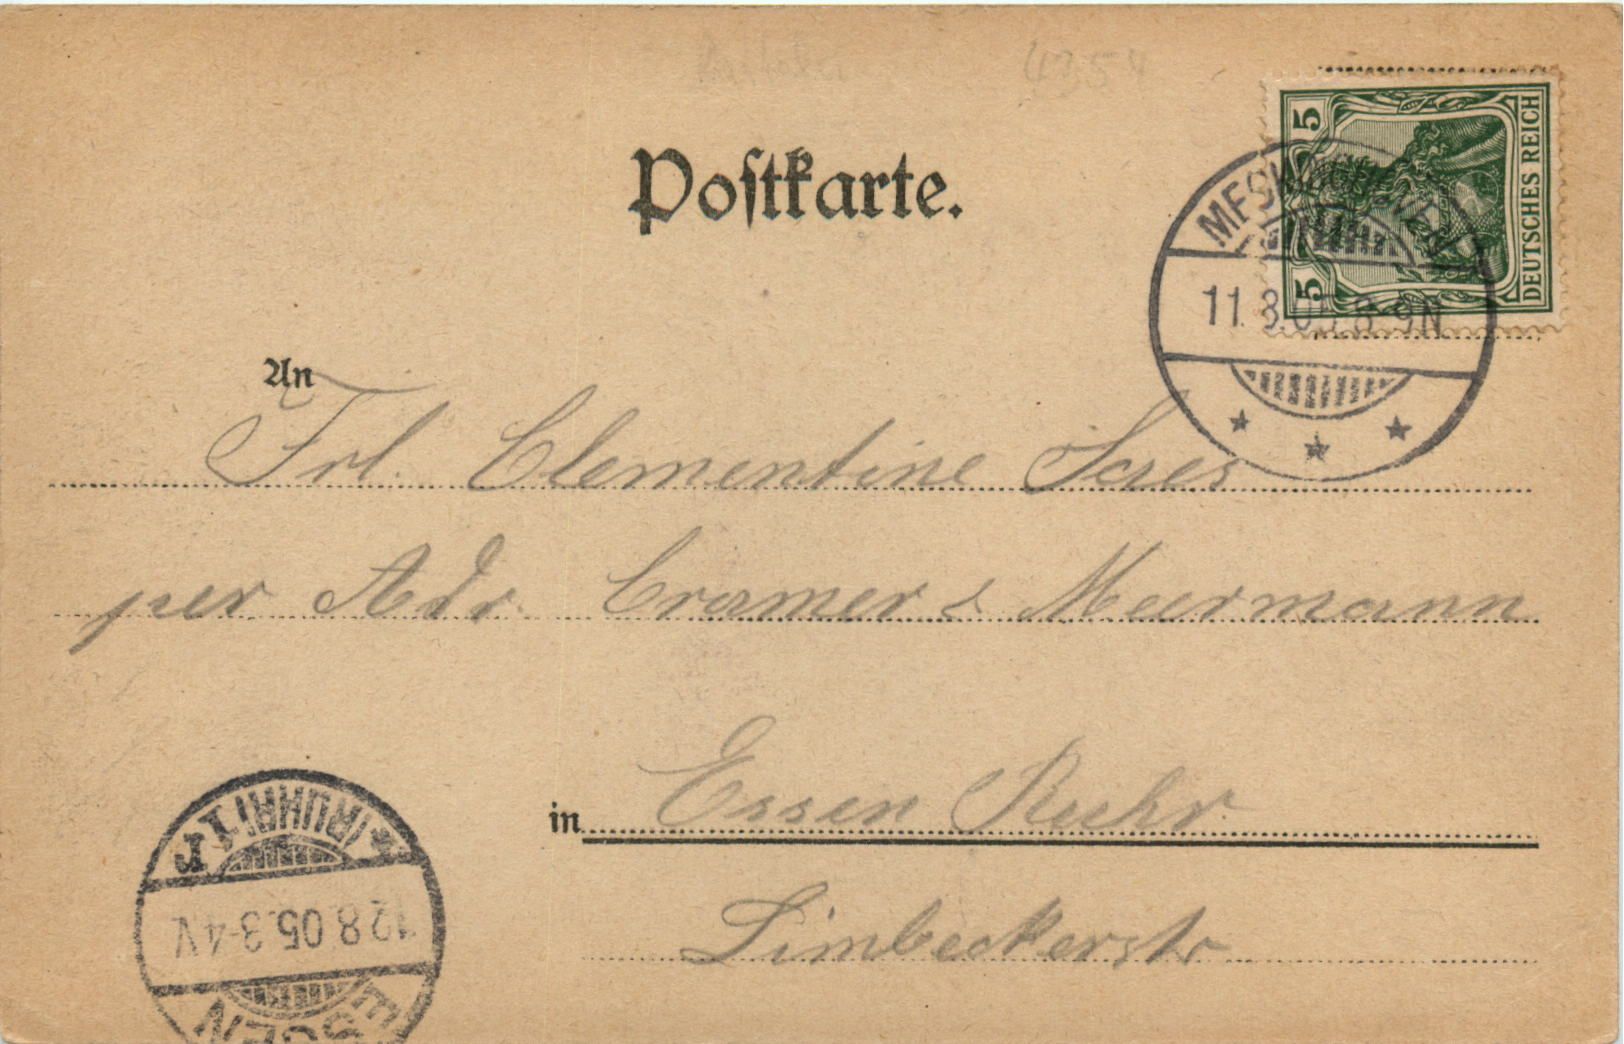 4354
Postkarte.
5
5
DEUTSCHES REICH
11.8.05.8-9N
An
Frl. Clementine
per Adr. Cramer & Meermann
in Essen Ruhr.
Limbeckerstr
ESSEN (RUHR) 1
12.8.05.3-4V